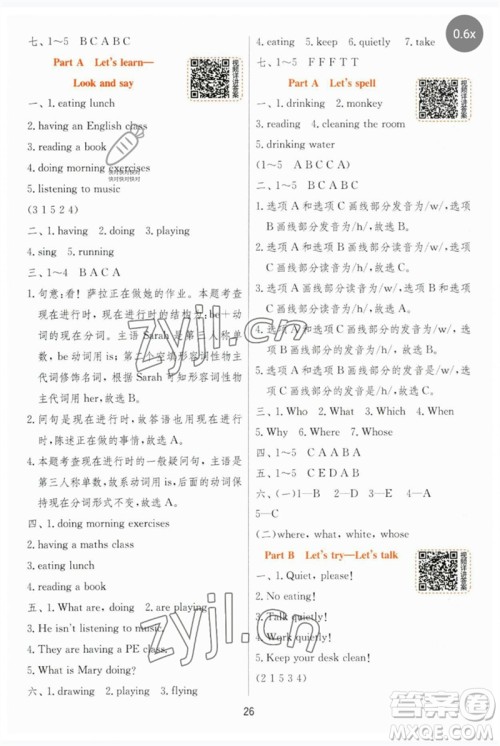 七、1～5 B C A B C
Part A Let's learn—
Look and say
一、1. eating lunch
2. having an English class
3. reading a book
4. doing morning exercises
5. listening to music
(3 1 5 2 4)
二、1. having 2. doing 3. playing
4. sing 5. running
三、1～4 B A C A
1. 句意:看！萨拉正在做她的作业。本题考查
现在进行时,现在进行时的结构是:be＋动
词的现在分词。主语 Sarah 是第三人称单
数,be 动词用 is；第二个空填形容词性物主
代词修饰名词,Sarah 对应的形容词性物主
代词用 her,故选 B。
2. 问句是现在进行时,故答语也用现在进行
时,陈述正在做的事情,故选 A。
4. 本题考查现在进行时的一般疑问句,主语是
第三人称单数,故用 is,后面的动词现在保
持现在分词形式不变,故选 A。
四、1. doing morning exercises
2. having a maths class
3. eating lunch
4. reading a book
五、1. What, doing 2. am playing
3. He isn't listening to music.
4. They are having a PE class.
5. What is Mary doing?
六、1. drawing 2. playing 3. flying
4. eating 5. keep 6. quietly 7. take
七、1～5 F F F T T
Part A Let's spell
一、1. drinking 2. monkey
3. reading 4. cleaning the room
5. drinking water
(1～5 A B C C A)
二、1～5 B C A B B
1. 选项 A 和选项 C 画线部分发音为/w/,选
项 B 画线部分发音为/h/,故选 B。
2. 选项 A 和选项 B 画线部分读音为/w/,选
项 C 画线部分读音为/h/,故选 C。
3. 选项 B 和选项 C 画线部分读音为/w/,选
项 A 画线部分读音为/h/,故选 A。
4. 选项 A 和选项 C 画线部分发音为/w/,选
项 B 画线部分发音为/h/,故选 B。
5. 选项 A 和选项 C 画线部分的发音是/h/,
选项 B 画线部分的发音是/w/,故选 B。
三、1. Who 2. What 3. Which
4. When
5. Why 6. Where 7. Whose
四、1～5 C A A B A
五、1～5 C E D A B
六、(一)1—B 2—D 3—E 4—A
5—C
(二)where, what, white, whose
Part B Let's try—Let's talk
一、1. Quiet, please!
2. No eating!
3. Talk quietly!
4. Work quietly!
5. Keep your desk clean!
(2 1 5 3 4)
26
0.6x
视频详讲答案
视频详讲答案
视频详讲答案
快对快对快对
快对快对快对
zyjl.cn
zyjl.cn
答案圈
MXQE.COM